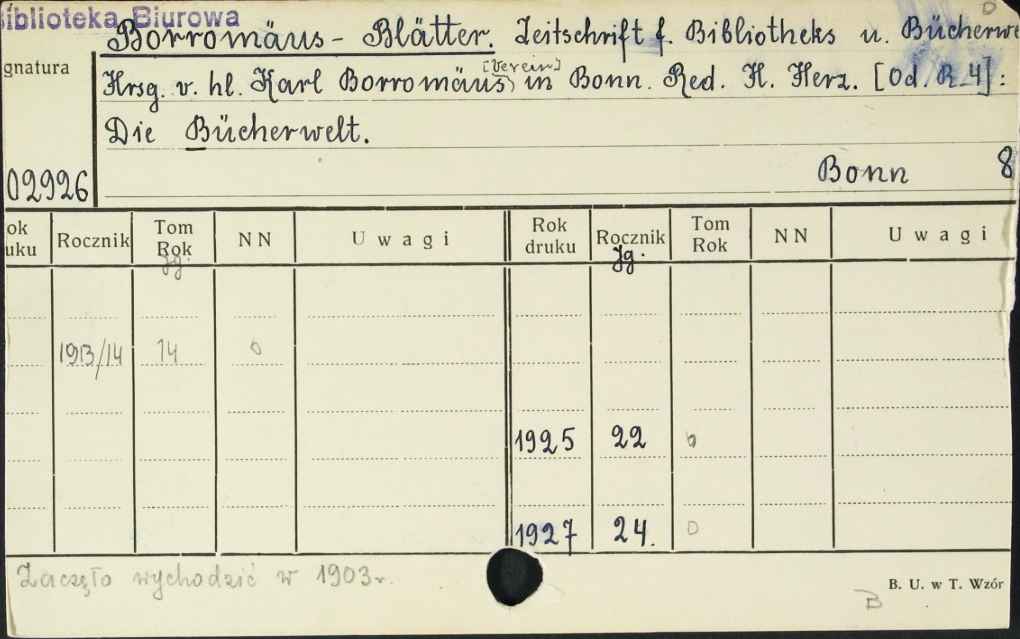 iblioteka Biurowa
D
Borromäus - Blätter. Zeitschrift f. Bibliotheks u. Bücherwe
gnatura
[Verein]
Hrsg. v. hl. Karl Borromäus in Bonn. Red. H. Herz. [Od. R. 4]:
Die Bücherwelt.
02926
Bonn 8
ok uku Rocznik Tom Rok NN Uwagi Rok druku Rocznik Tom Rok NN Uwagi
Jg. Jg.
1913/14 14 o
1925 22 o
1927 24. o
Zaczęło wychodzić w 1903 r.
B. U. w T. Wzór
B